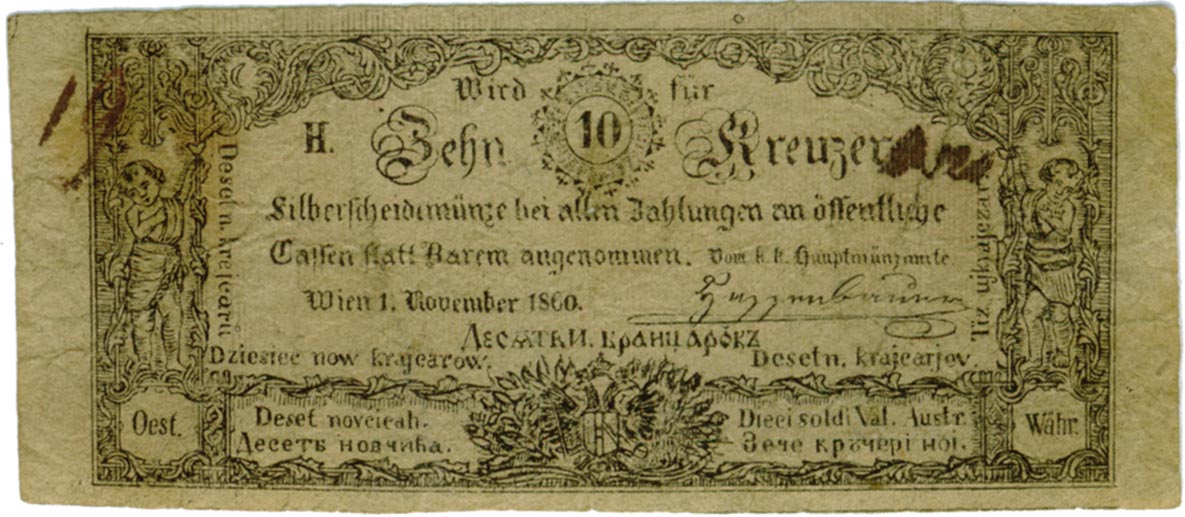 Wird für
H. Zehn 10 Kreuzer
Silberscheidemünze bei allen Zahlungen an öffentliche
Cassen statt Barem angenommen. Vom k. k. Hauptmünzamte
Wien 1. November 1860.
Десѧтьи. кранцарőкъ
Dziesiec now krajcarow.
Desetn. krajcarjev.
Desetn. krejcarů
Tiz
Oest.
Deset novcicah.
Десетъ новчића.
Dieci soldi Val. Austr.
Зече кръчерĭ ноĭ.
Währ.